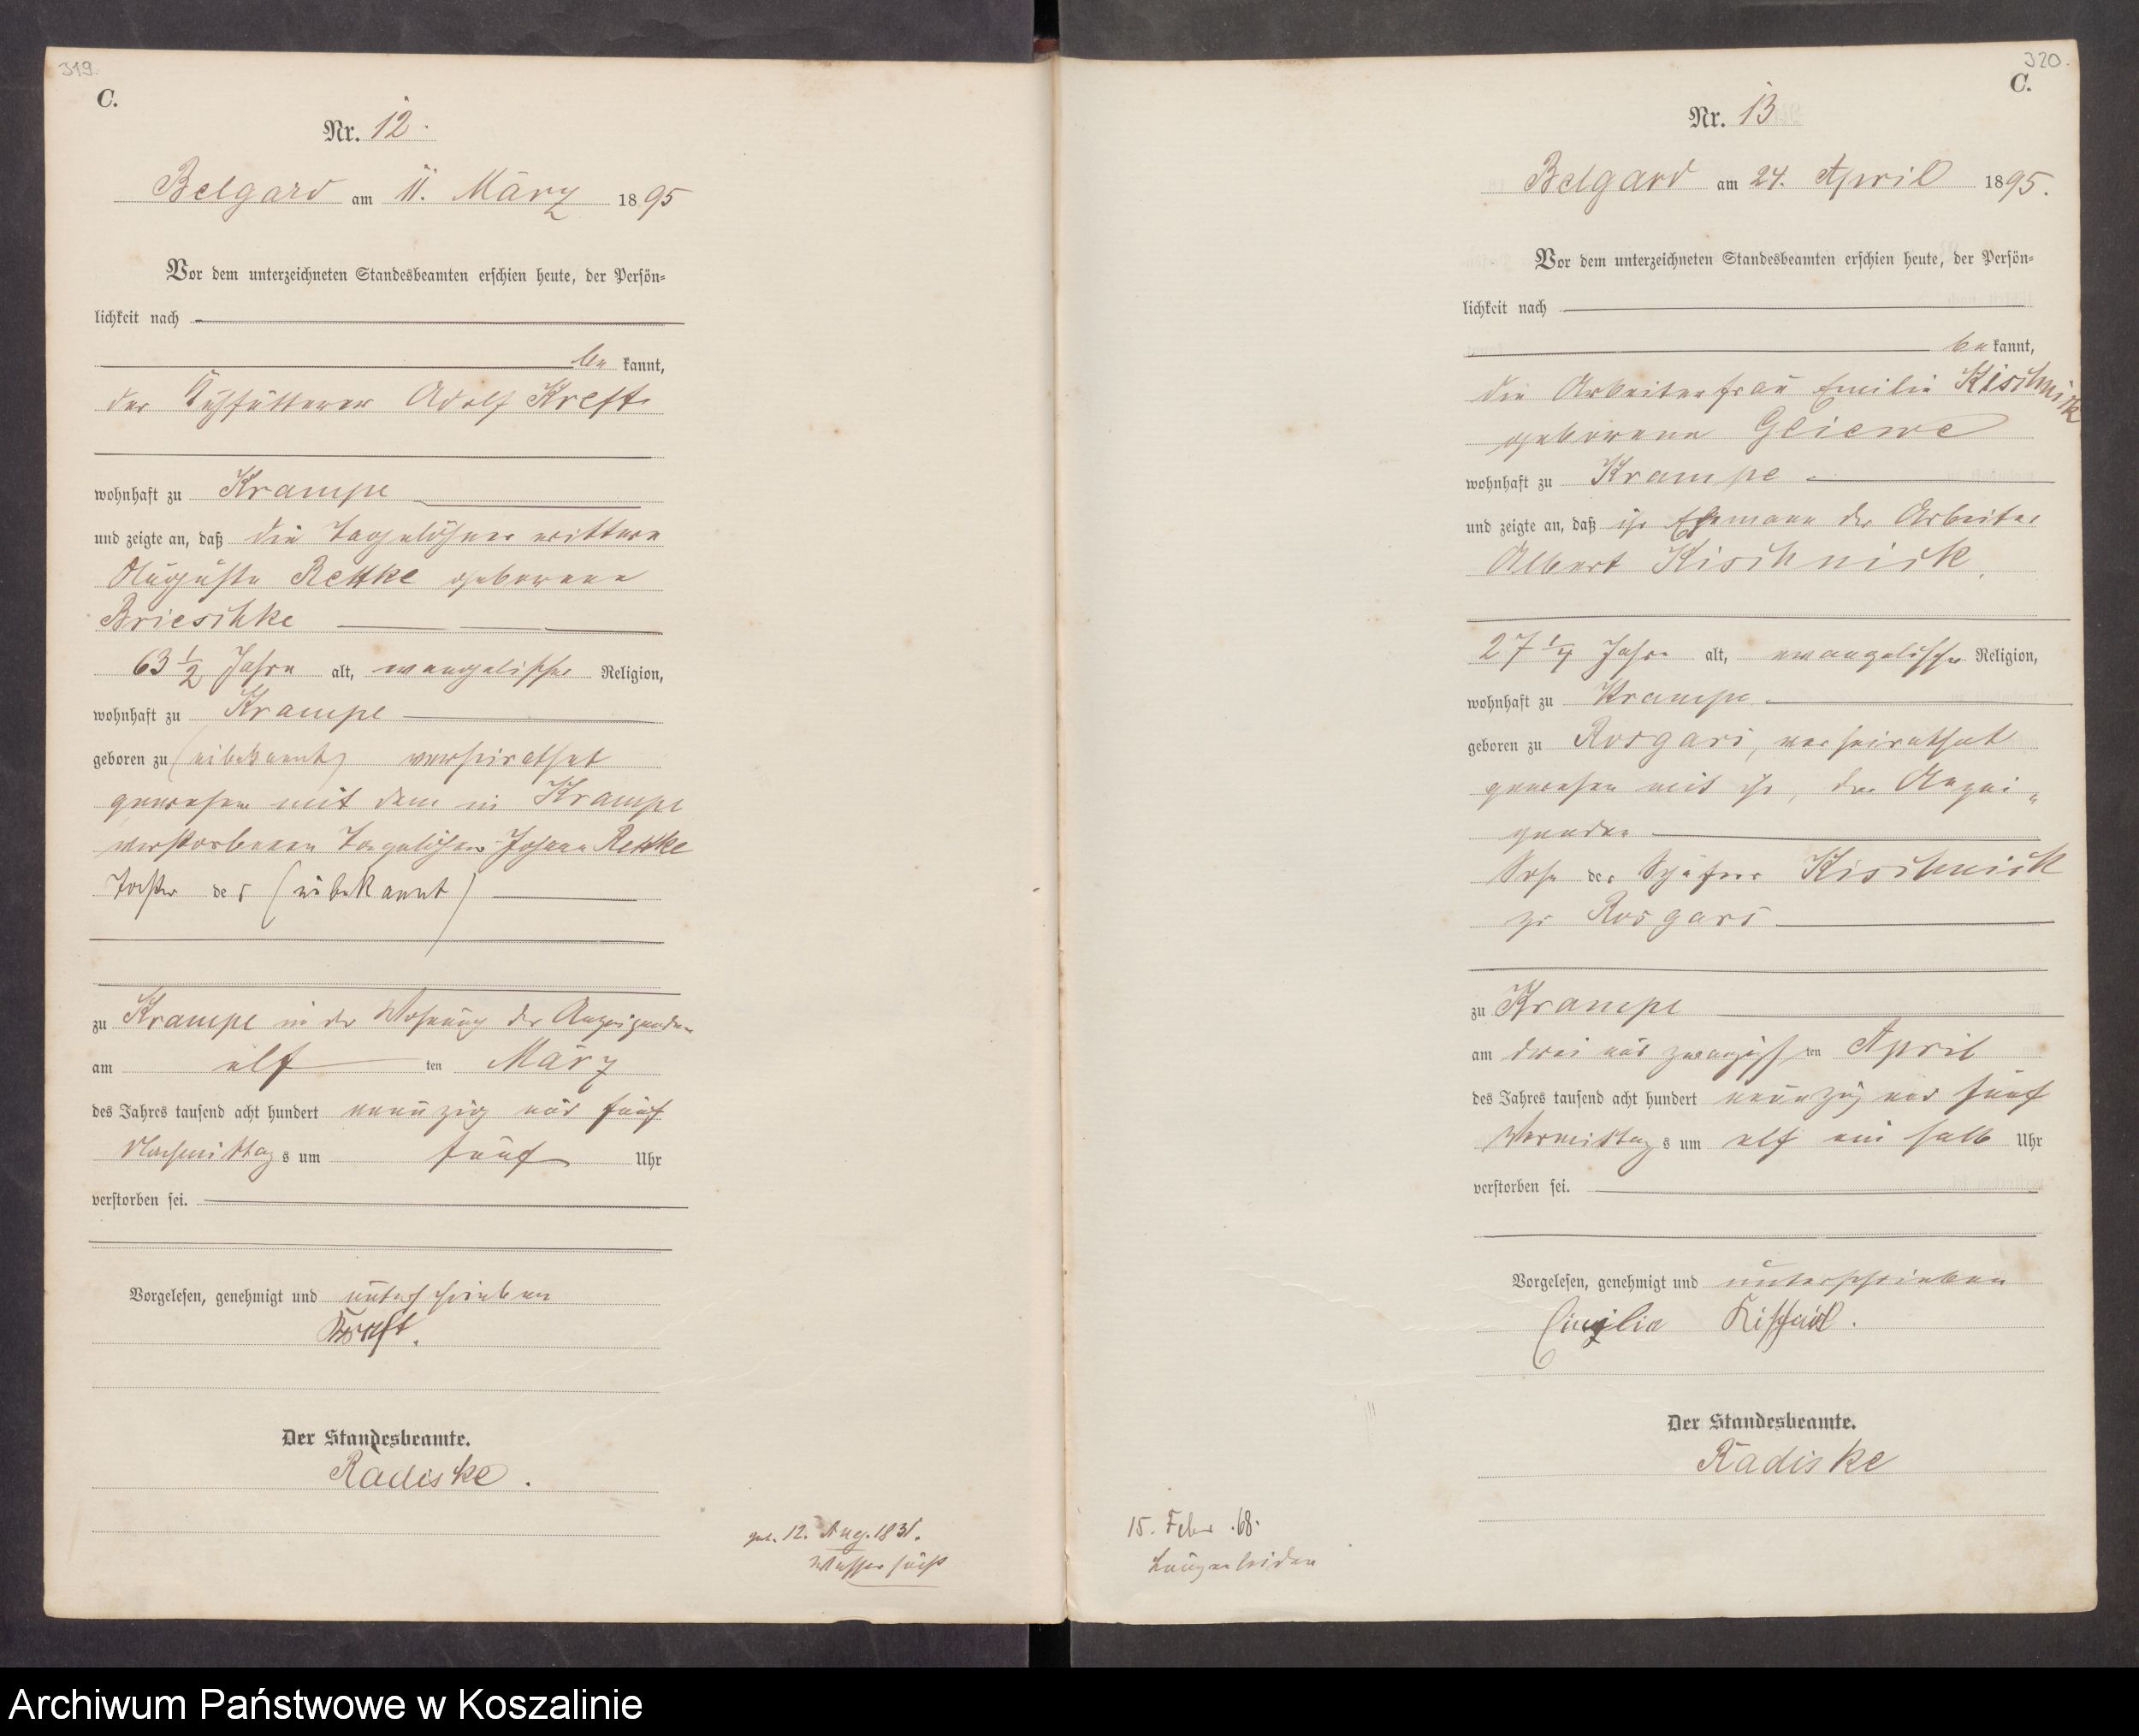 319.
C.
Nr. 12.
Belgard am 11. März 1895
Vor dem unterzeichneten Standesbeamten erschien heute, der Persön-
lichkeit nach
be kannt,
der Adolf Kreft
wohnhaft zu Krampe
und zeigte an, daß die Tagelöhner wittwe
Auguste Rettke geborene
Brieschke
63 1/2 Jahre alt, evangelischer Religion,
wohnhaft zu Krampe
geboren zu (unbekannt) verheirathet
gewesen mit dem in Krampe
verstorbenen Tagelöhner Johann Rettke
Tochter des (unbekannt)
zu Krampe in der Wohnung des Anzeigenden
am elf ten März
des Jahres tausend acht hundert neunzig und fünf
Nachmittags um fünf Uhr
verstorben sei.
Vorgelesen, genehmigt und unterschrieben
Kreft.
Der Standesbeamte.
Radiske.
geb. 12. Aug. 1831.
Wassersucht
320.
C.
Nr. 13
Belgard am 24. April 1895.
Vor dem unterzeichneten Standesbeamten erschien heute, der Persön-
lichkeit nach
be kannt,
die Arbeiterfrau Emilie Kischnick
geborene Gliewe
wohnhaft zu Krampe
und zeigte an, daß ihr Ehemann der Arbeiter
Albert Kischnick,
27 1/4 Jahre alt, evangelischer Religion,
wohnhaft zu Krampe
geboren zu Rosgars, verheirathet
gewesen mit ihr, der Anzei„
genden
Sohn des Schäfers Kischnick
zu Rosgars
zu Krampe
am drei und zwanzigsten April
des Jahres tausend acht hundert neunzig und fünf
Vormittags um elf ein halb Uhr
verstorben sei.
Vorgelesen, genehmigt und unterschrieben
Emilie Kischnick.
Der Standesbeamte.
Radiske
15. Febr. 68.
Lungenleiden
Archiwum Państwowe w Koszalinie